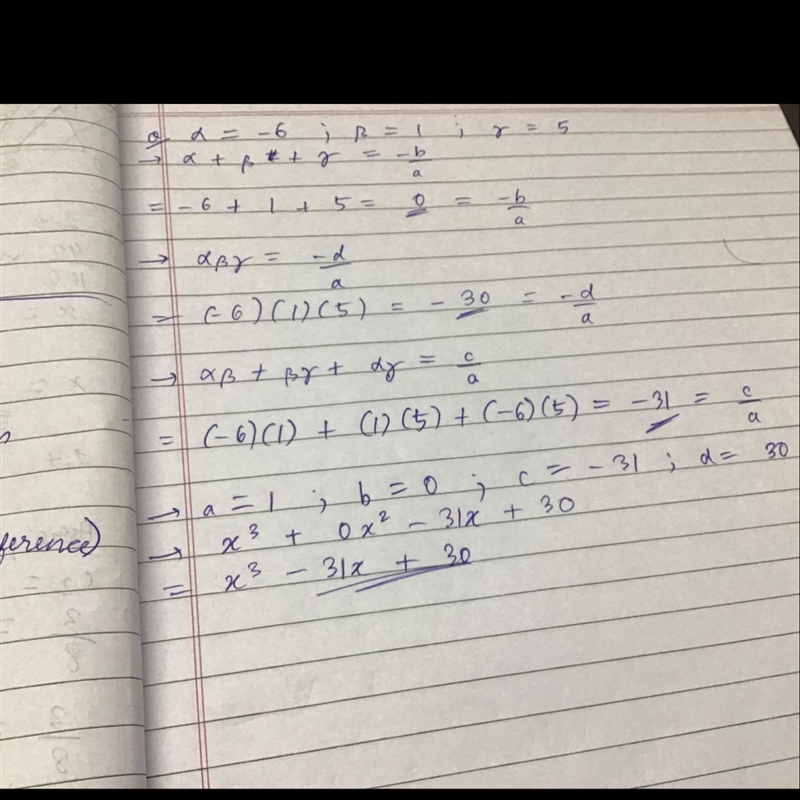 Q α = -6 ; β = 1 ; γ = 5
→ α + β + γ = -b/a
= -6 + 1 + 5 = 0 = -b/a
→ αβγ = -d/a
= (-6)(1)(5) = -30 = -d/a
→ αβ + βγ + αγ = c/a
= (-6)(1) + (1)(5) + (-6)(5) = -31 = c/a
→ a = 1 ; b = 0 ; c = -31 ; d = 30
→ x³ + 0x² - 31x + 30
= x³ - 31x + 30
ference)